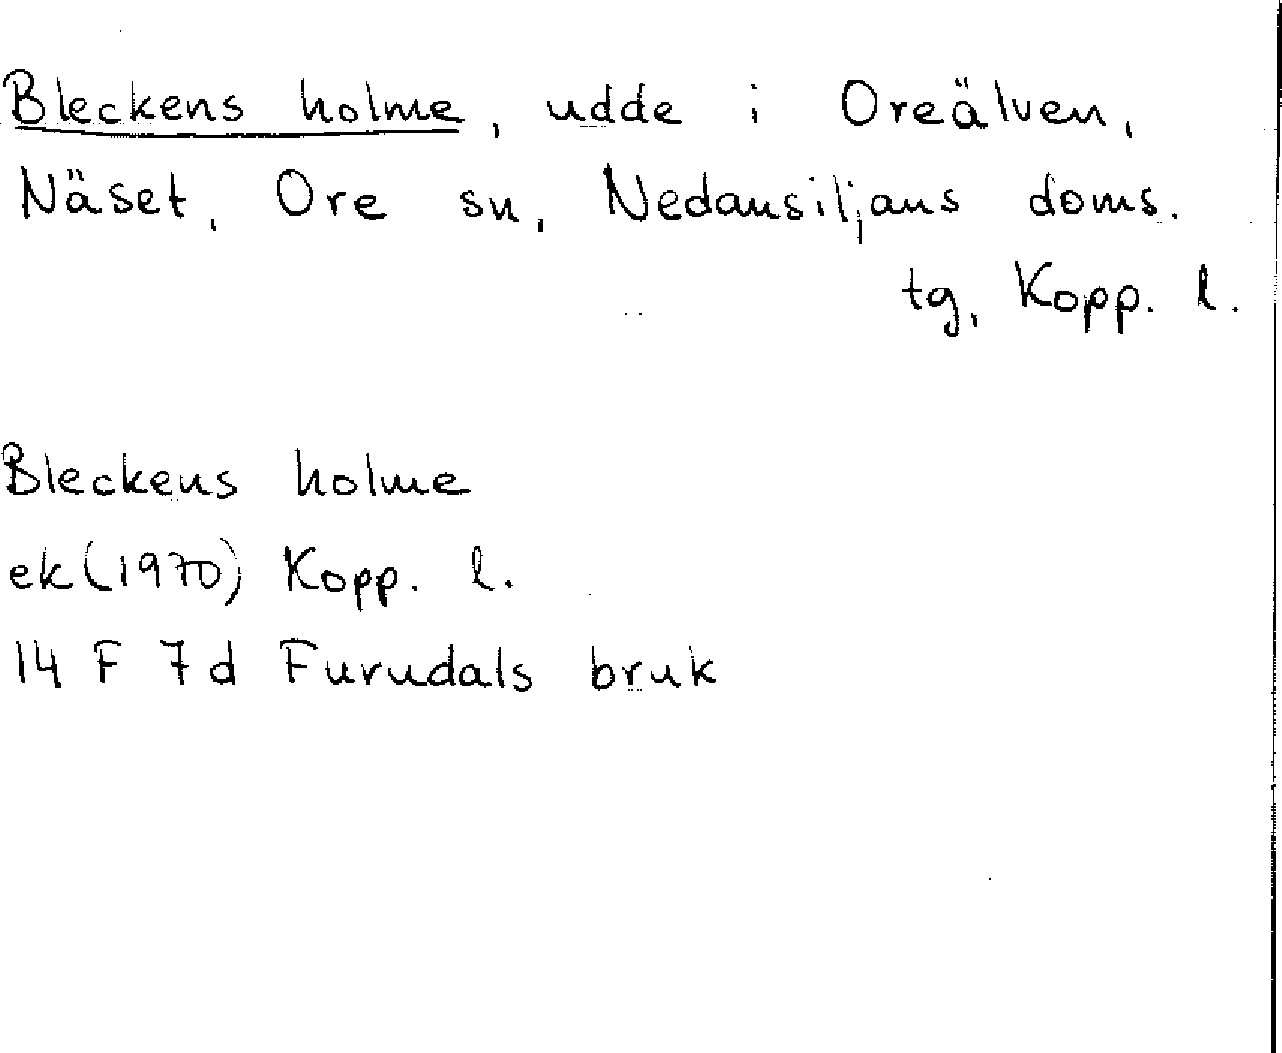 Bleckens holme, udde i Oreälven,
Näset, Ore sn, Nedansiljans doms.
tg, Kopp. l.
Bleckens holme
ek (1970) Kopp. l.
14 F 7d Furudals bruk